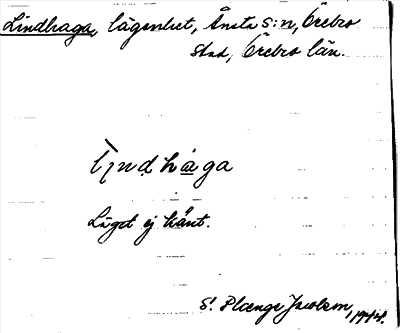 Lindhaga, lägenhet, Ånsta s:n, Örebro
stad, Örebro län.
lịndhaga
Läget ej känt.
S. Plænge Jacobson, 1944.